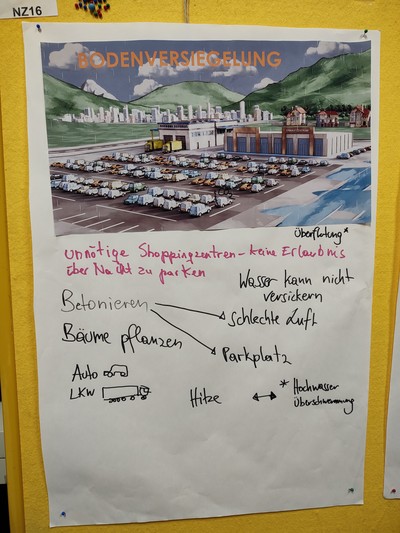 NZ16
BODENVERSIEGELUNG
Überflutung*
unnötige Shoppingzentren - keine Erlaubnis
über Nacht zu parken
Wasser kann nicht
versickern
Betonieren
schlechte Luft
Bäume pflanzen
Parkplatz
Auto
LKW
Hitze
* Hochwasser
Überschwemmung